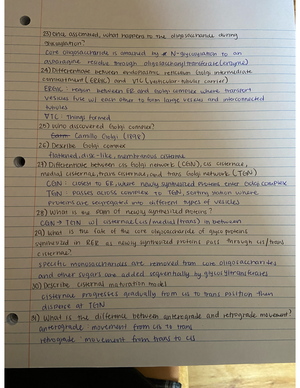 23) Once assembled, what happens to the oligosaccharide during
glycosylation?
Core oligosaccharide is attached by N-glycosylation to an
asparagine residue through oligosaccharyltransferase (enzyme)
24) Differentiate between endoplasmic reticulum Golgi intermediate
compartment (ERGIC) and VTC (vesicular-tubular carrier)
ERGIC: region between ER and Golgi complex where transport
vesicles fuse w/ each other to form large vesicles and interconnected
tubules
VTC: things formed
25) Who discovered Golgi complex?
Camillo Golgi (1898)
26) Describe Golgi complex
flattened, disk-like, membranous cisternae
27) Differentiate between cis Golgi network (CGN), cis cisternae,
medial cisternae, trans cisternae, and trans Golgi network (TGN)
CGN: closer to ER, where newly synthesized proteins enter Golgi complex
TGN: passes across complex to TGN, sorting station where
proteins are segregated into different types of vesicles
28) What is the path of newly synthesized proteins?
CGN → TGN w/ cisternae (cis/medial/trans) in between
29) What is the fate of the core oligosaccharide of glycoproteins
synthesized in RER as newly synthesized proteins pass through cis/trans
cisternae?
specific monosaccharides are removed from core oligosaccharides
and other sugars are added sequentially by glycosyltransferases
30) Describe cisternal maturation model
cisternae progresses gradually from cis to trans position then
disperse at TGN
31) What is the difference between anterograde and retrograde movement?
anterograde movement from cis to trans
retrograde movement from trans to cis